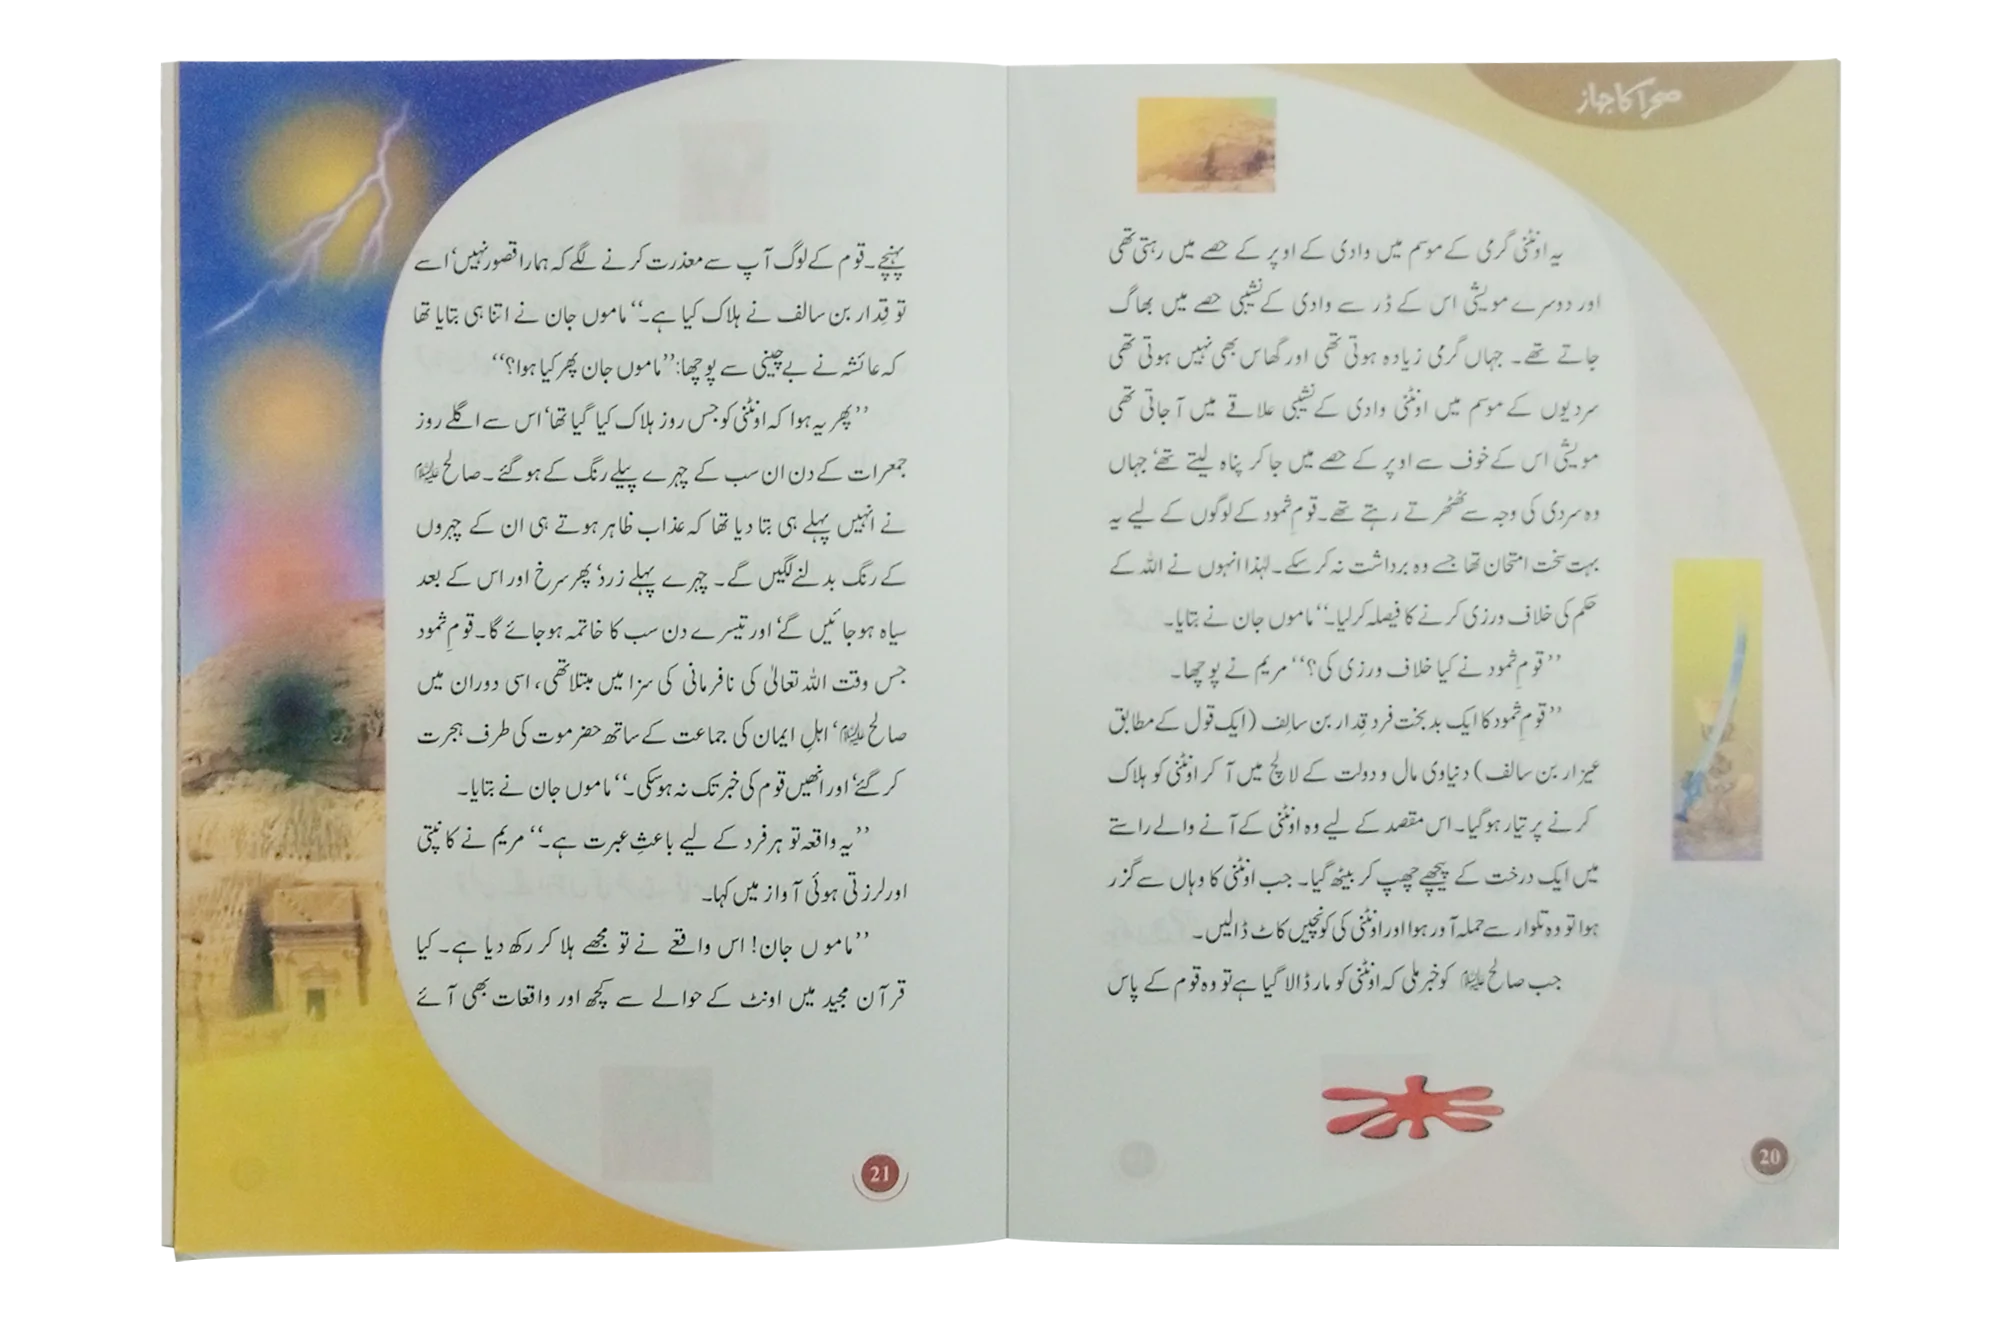 صحرا کا جہاز
یہ اونٹنی گرمی کے موسم میں وادی کے اوپر کے حصے میں رہتی تھی
اور دوسرے مویشی اس کے ڈر سے وادی کے نشیبی حصے میں بھاگ
جاتے تھے۔ جہاں گرمی زیادہ ہوتی تھی اور گھاس بھی نہیں ہوتی تھی
سردیوں کے موسم میں اونٹنی وادی کے نشیبی علاقے میں آ جاتی تھی
مویشی اس کے خوف سے اوپر کے حصے میں جا کر پناہ لیتے تھے‘ جہاں
وہ سردی کی وجہ سے ٹھٹھرتے رہتے تھے۔ قومِ ثمود کے لوگوں کے لیے یہ
بہت سخت امتحان تھا جسے وہ برداشت نہ کر سکے۔ لہٰذا انہوں نے اللہ کے
حکم کی خلاف ورزی کرنے کا فیصلہ کر لیا۔‘‘ ماموں جان نے بتایا۔
’’قومِ ثمود نے کیا خلاف ورزی کی؟‘‘ مریم نے پوچھا۔
’’قومِ ثمود کا ایک بد بخت فرد قِدار بن سالِف (ایک قول کے مطابق
عیزار بن سالف) دنیاوی مال و دولت کے لالچ میں آ کر اونٹنی کو ہلاک
کرنے پر تیار ہو گیا۔ اس مقصد کے لیے وہ اونٹنی کے آنے والے راستے
میں ایک درخت کے پیچھے چھپ کر بیٹھ گیا۔ جب اونٹنی کا وہاں سے گزر
ہوا تو وہ تلوار سے حملہ آور ہوا اور اونٹنی کی کونچیں کاٹ ڈالیں۔
جب صالح علیہ السلام کو خبر ملی کہ اونٹنی کو مار ڈالا گیا ہے تو وہ قوم کے پاس
20
پہنچے۔ قوم کے لوگ آپ سے معذرت کرنے لگے کہ ہمارا قصور نہیں‘ اسے
تو قِدار بن سالف نے ہلاک کیا ہے۔‘‘ ماموں جان نے اتنا ہی بتایا تھا
کہ عائشہ نے بے چینی سے پوچھا: ’’ماموں جان پھر کیا ہوا؟‘‘
’’پھر یہ ہوا کہ اونٹنی کو جس روز ہلاک کیا گیا تھا‘ اس سے اگلے روز
جمعرات کے دن ان سب کے چہرے پیلے رنگ کے ہو گئے۔ صالح علیہ السلام
نے انہیں پہلے ہی بتا دیا تھا کہ عذاب ظاہر ہوتے ہی ان کے چہروں
کے رنگ بدلنے لگیں گے۔ چہرے پہلے زرد‘ پھر سرخ اور اس کے بعد
سیاہ ہو جائیں گے‘ اور تیسرے دن سب کا خاتمہ ہو جائے گا۔ قومِ ثمود
جس وقت اللہ تعالیٰ کی نافرمانی کی سزا میں مبتلا تھی، اسی دوران میں
صالح علیہ السلام‘ اہلِ ایمان کی جماعت کے ساتھ حضر موت کی طرف ہجرت
کر گئے‘ اور انھیں قوم کی خبر تک نہ ہو سکی۔‘‘ ماموں جان نے بتایا۔
’’یہ واقعہ تو ہر فرد کے لیے باعثِ عبرت ہے۔‘‘ مریم نے کانپتی
اور لرزتی ہوئی آواز میں کہا۔
’’ماموں جان! اس واقعے نے تو مجھے ہلا کر رکھ دیا ہے۔ کیا
قرآن مجید میں اونٹ کے حوالے سے کچھ اور واقعات بھی آئے
21